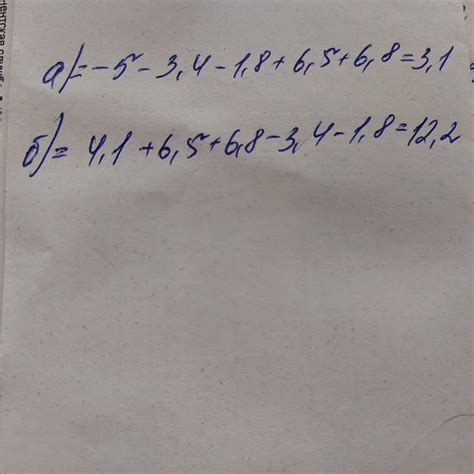 а)=-5-3,4-1,8+6,5+6,8=3,1
б)= 4,1+6,5+6,8-3,4-1,8=12,2